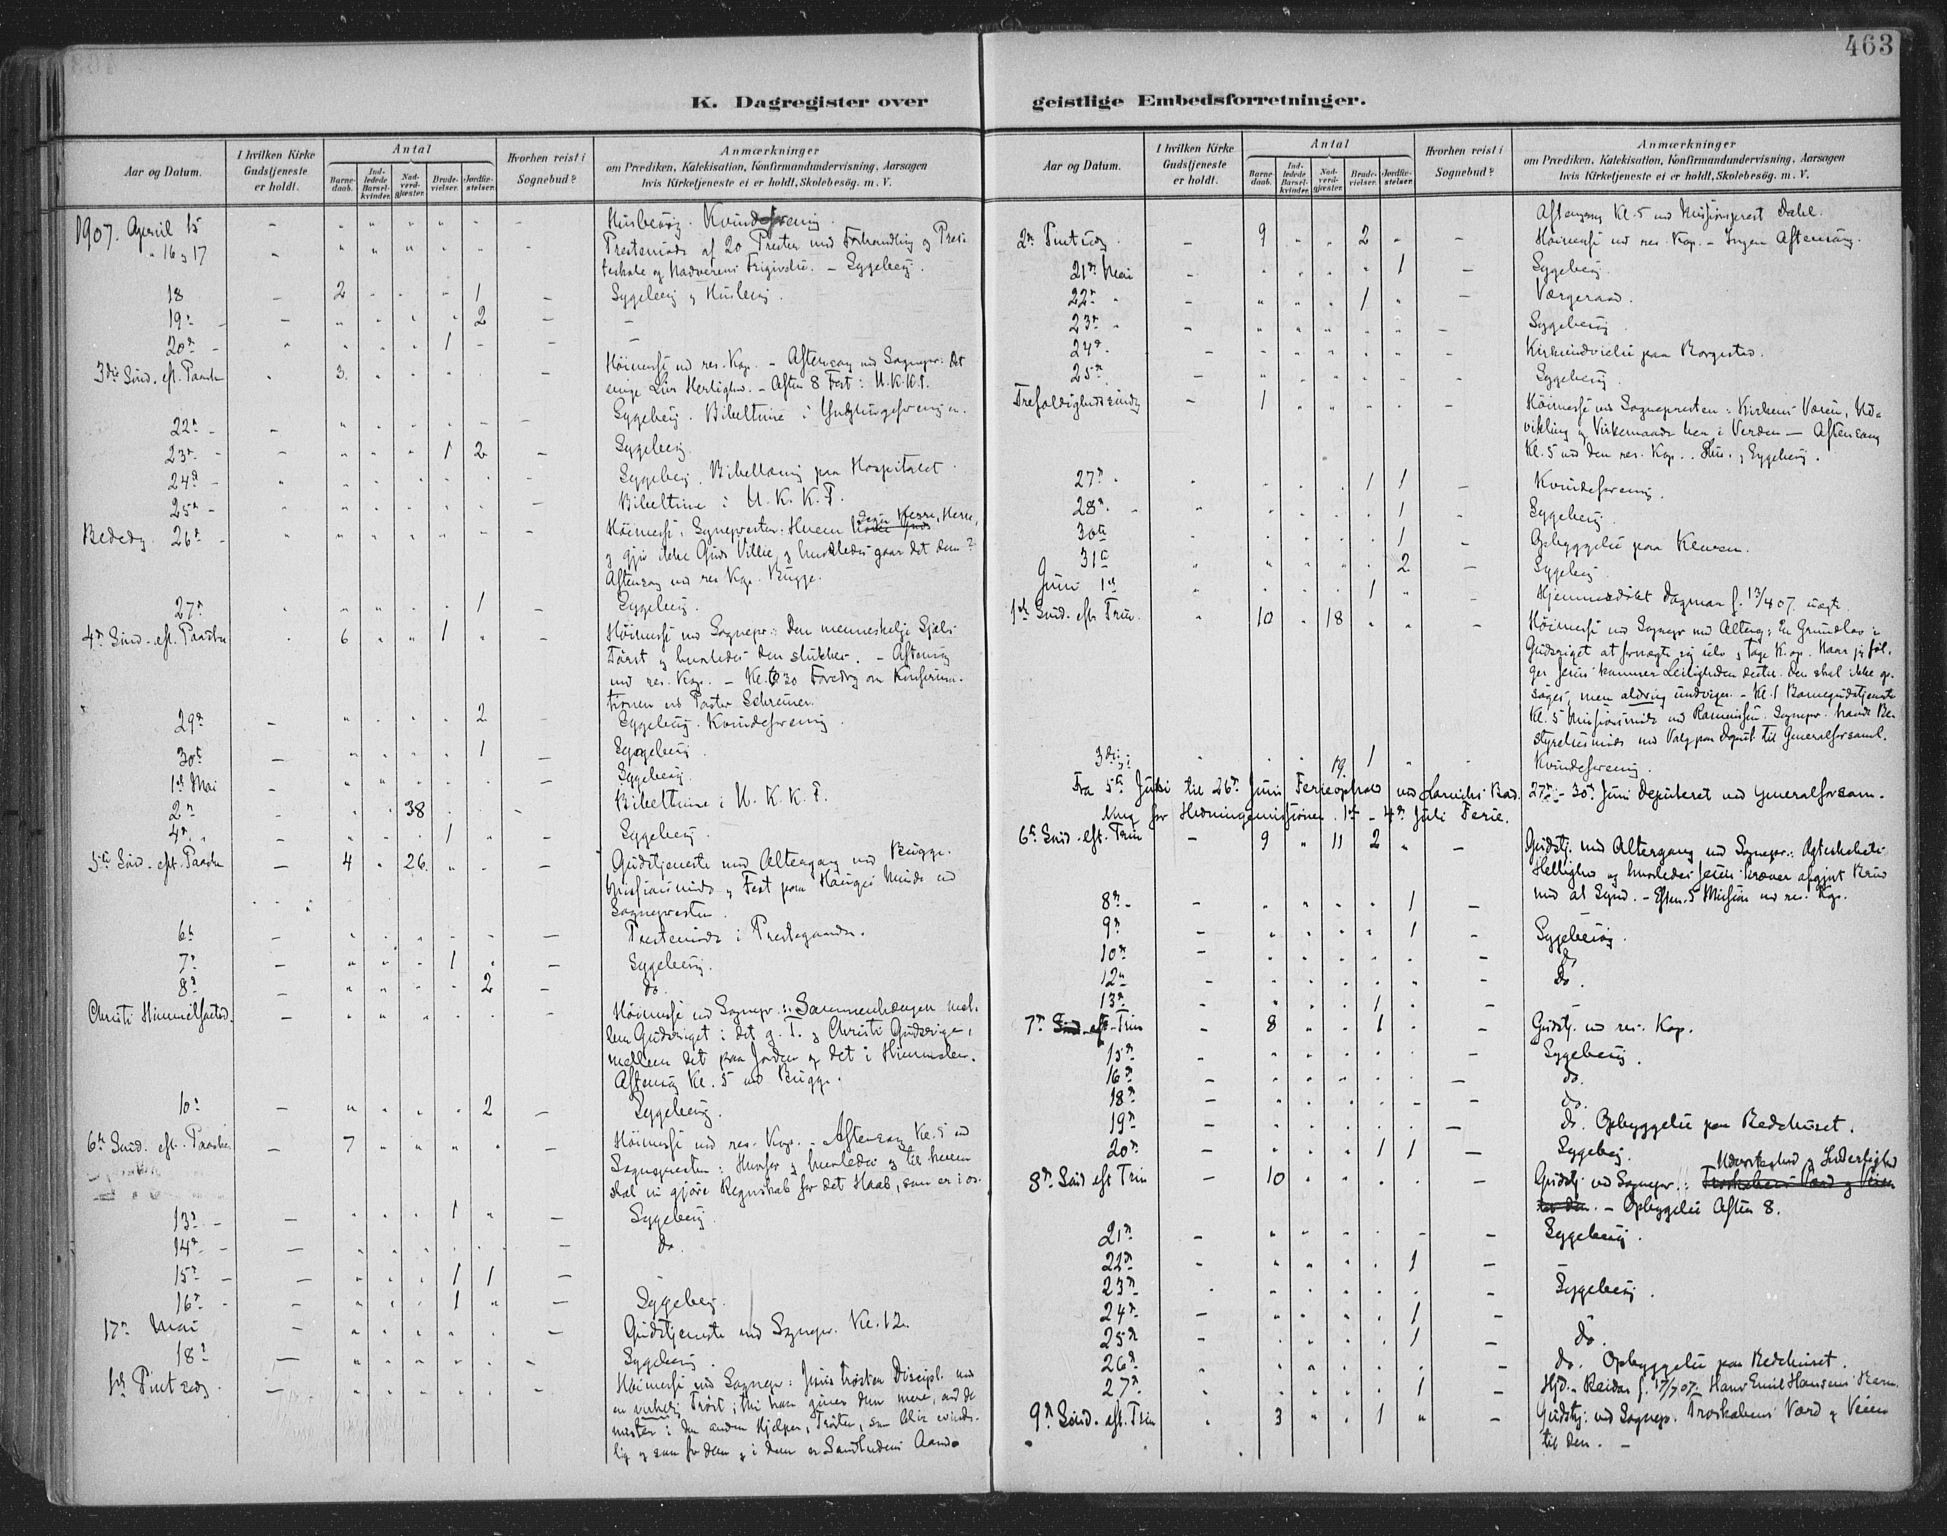 463
K. Dagregister over
Aar og Datum.
I hvilken Kirke Gudstjeneste er holdt.
Antal
Barnedaab.
Indledede Barselkvinder.
Nadverdgjæster.
Brudevielser.
Jordfæstelser.
Hvorhen reist i Sognebud?
Anmærkninger
om Prædiken, Katekisation, Konfirmandundervisning, Aarsagen
hvis Kirketjeneste ei er holdt, Skolebesøg. m. V.
1907. April 15 Husbesøg. Kvindeforening.
" 16 og 17 Prestemøde af 20 Prester med Forhandling og
og Nadverens Frigivelse. – Sygebesøg.
18 – 2 1 – Sygebesøg og Husbesøg.
19de – 2 –
20de – 1 –
3die Sønd. eft. Paaske 3. Høimesse ved res. Kap. – Aftensang ved Sognepr.: Det
evige Livs Herlighed. – Aften 8 Fest: U.K.K.F.
22de – Sygebesøg. Bibeltime i
23de – 1 2 – Sygebesøg.
24de – Sygebesøg. Bibellæsning paa Hospitalet.
25de – Bibeltime i U. K. K. F.
Bededag 26de – Høimesse: Sognepresten: Hvem siger Herre, Herre,
og gjør ikke Guds Villie, og hvorledes gaar det dem?
Aftensang ved res Kap. Bugge.
27de 1 – Sygebesøg.
4de Sønd. eft. Paaske 6 1 Høimesse ved Sognepr.: Den menneskelige Sjæls
Tørst og hvorledes den slukkes. – Aftensang
ved res. Kap. – Foredrag om Konfirma-
tionen ved Pastor Schreiner.
29de 2 – Sygebesøg. Kvindeforening.
30te – 1 – Sygebesøg.
1ste Mai – Sygebesøg.
2den – 38 Bibeltime i U. K. K. F.
4de – 1 – Sygebesøg.
5te Sønd. eft. Paaske – 4 26 – Gudstjeneste med Altergang ved Bugge.
Missionsmøde og Fest paa Hauges Minde ved
Sognepresten.
6te – Prestemøde i Prestegaarden.
7de – 1 – Sygebesøg.
8de – 2 – do.
Christi Himmelfartsd. – Høimesse ved Sognepr.: Sammenhængen mel-
lem Gudsriget i det g. T. og Christi Gudsrige,
mellem det paa Jorden og det i Himmelen.
Aftensang Kl. 5 ved Bugge.
10de – 2 – Sygebesøg.
6te Sønd. eft. Paaske. – 7 – Høimesse ved res. Kap. – Aftensang Kl. 5 ved
Sognepresten: Hvorfor og hvorledes og til hvem
skal vi gjøre Regnskab for det Haab, som er i os.
13de – 1 – Sygebesøg.
14de – do.
15de – 1 1 –
16de – 1 – Sygebesøg.
17de Mai – Gudstjeneste ved Sognepr. Kl. 12.
18de – Sygebesøg.
1ste Pintsedag. – Høimesse ved Sognepr.: Jesus trøster Discipl. med
en virkelig Trøst; thi han giver dem mere, end de
mister: i den anden Hjelper, Trøster, som blir evinde-
lig og som for dem og i dem er Sandhedens Aand.
geistlige Embedsforretninger.
Aar og Datum.
I hvilken Kirke Gudstjeneste er holdt.
Antal
Barnedaab.
Indledede Barselkvinder.
Nadverdgjæster.
Brudevielser.
Jordfæstelser.
Hvorhen reist i Sognebud?
Anmærkninger
om Prædiken, Katekisation, Konfirmandundervisning, Aarsagen
hvis Kirketjeneste ei er holdt, Skolebesøg. m. V.
Aftensang Kl. 5 ved Missionsprest Dahl.
2den Pintsdag. – 9 2 – Høimesse ved res. Kap. – Ingen Aftensang.
21de Mai – 1 – Sygebesøg.
22de – 1 – Værgeraad.
23de – Sygebesøg.
24de – Kirkeindvielse paa Borgestad.
25de – Sygebesøg.
Trefoldighedssøndag – 1 – Høimesse ved Sognepresten: Kirkens Væren, Ud-
vikling og Virkemaade her i Verden – Aftensang
Kl. 5 ved den res. Kap. Hus- og Sygebesøg.
27de 1 1 – Kvindeforening.
28de 1 – Sygebesøg.
30te 1 – Opbyggelse paa Klevene.
31te 2 – Sygebesøg.
Juni 1ste 1 – Hjemmedøbt Dagmar f. 13/4 07. uægte.
1ste Sønd. eft. Trin. 10 18 – Høimesse ved Sognepr med Alterg: En Grundlov i
Gudsriget at fornægte sig selv og tage K. op. Naar jeg føl-
ger Jesus kommer Leiligheden dertil. Den skal ikke op-
søges, men aldrig undviges. – Kl. 1 Børnegudstjeneste
Kl. 5 Missionsmøde ved Rasmussen. Sognepr. havde Be-
styrelsesmøde med Valg paa Deput. til Generalforsaml.
3die 19. 1 – Kvindeforening.
Fra 5te Juni til 26de Juni Ferieophold ved Larviks Bad. 27de – 30te Juni Deputeret ved Generalforsam-
ling for Hedningemissionen. 1ste – 4de Juli Ferie.
6te Sønd. eft. Trin – 9 11 2 – Gudstj. med Altergang ved Sognepr.: Ægteskabets
Hellighed og hvorledes Jesus kræver afgjort Brud
med al Synd. – Efterm. 5 Mission ved res. Kap.
8de – 1 –
9de – 1 – Sygebesøg.
10de – do
12te – do.
13de – 1 –
7de Sønd. eft. Trin – 8 1 – Gudstj. ved res. Kap.
15de – Sygebesøg.
16de – do.
18de – do.
19de – do. Opbyggelse paa Bedehuset.
20de – 1 1 – Sygebesøg.
8de Sønd eft Trin – 10 – Gudstj. ved Sognepr.:
– Opbyggelse Aften 8.
21de – Sygebesøg.
22de – 1 –
23de – Sygebesøg.
24de – 1 –
25de – 1 – do.
26de – do. Opbyggelse paa Bedehuset.
27de 1 – Hjd. Reidar f. 17/7 07. Hans Emil Hansens Barn.
9de Sønd. eft. Trin 3 1 – Gudstj. ved Sognepr. Troskabens Værd og Veien
til den. –